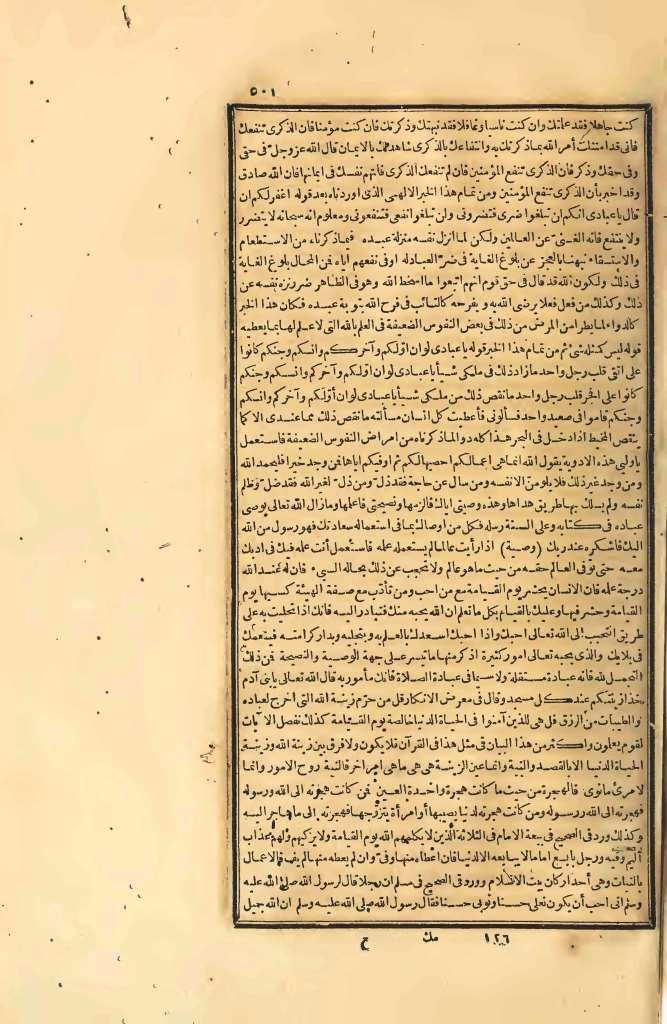 ٥٠١
كنت جاهلا فقد علمتك وان كنت ناسيا وغافلا فقد نبهتك وذكرتك فان كنت مؤمنا فان الذكرى تنفعك
فانى قد امتثلت أمر الله بما ذكرتك به وانتفاعك بالذكرى شاهد لك بالايمان قال الله عز وجل فى حق
وفى حقك وذكر فان الذكرى تنفع المؤمنين فان لم تنفعك الذكرى فاتهم نفسك فى ايمانها فان الله صادق
وقد اخبر بأن الذكرى تنفع المؤمنين ومن تمام هذا الخبر الالهى الذى اوردناه بعد قوله اغفر لكم ان
قال يا عبادى انكم ان تبلغوا ضرى فتضرونى ولن تبلغوا نفعى فتنفعونى ومعلوم انه سبحانه لا يتضرر
ولا ينتفع فانه الغنى عن العالمين ولكن لما انزل نفسه منزلة عبده فيما ذكرناه من الاستطعام
والاستسقاء نبهنا بالعجز عن بلوغ الغاية فى ضر العباد له او فى نفعهم اياه فمن المحال بلوغ الغاية
فى ذلك ولكون الله قد قال فى حق قوم انهم اتبعوا ما اسخط الله وهو فى الظاهر ضرر نزه نفسه عن
ذلك وكذلك من فعل فعلا يرضى الله به ويفرحه كالتائب فى فرح الله بتوبة عبده فكان هذا الخبر
كالدواء لما يطرا من المرض من ذلك فى بعض النفوس الضعيفة فى العلم بالله التى لا علم لها بما يعطيه
قوله ليس كمثله شئ ثم من تمام هذا الخبر قوله يا عبادى لو ان اولكم وآخركم وانسكم وجنكم كانوا
على اتقى قلب رجل واحد ما زاد ذلك فى ملكى شيأ يا عبادى لو ان اولكم وآخركم وانسكم وجنكم
كانوا على افجر قلب رجل واحد ما نقص ذلك من ملكى شيأ يا عبادى لو ان أولكم وآخركم وانسكم
وجنكم قاموا فى صعيد واحد فسألونى فأعطيت كل انسان مسألته ما نقص ذلك مما عندى الا كما
ينقص المخيط اذا دخل فى البحر هذا كله دواء لما ذكرناه من امراض النفوس الضعيفة فاستعمل
يا وليى هذه الادوية يقول الله انما هى اعمالكم احصيها لكم ثم اوفيكم اياها فمن وجد خيرا فليحمد الله
ومن وجد غير ذلك فلا يلومن الا نفسه ومن سال عن حاجة فقد ذل ومن ذل لغير الله فقد ضل وظلم
نفسه ولم يسلك بها طريق هداها وهذه وصيتى اياك فالزمها ونصيحتى فاعلمها وما زال الله تعالى يوصى
عباده فى كتابه وعلى السنة رسله فكل من اوصاك بما فى استعماله سعادتك فهو رسول من الله
اليك فاشكره عند ربك (وصية) اذا رأيت عالما لم يستعمله علمه فاستعمل أنت علمه فيك فى ادبك
معه حتى توفى العالم حقه من حيث ما هو عالم ولا تحجب عن ذلك بحاله السيئ فان له عند الله
درجة علمه فان الانسان يحشر يوم القيامة مع من احب ومن تأدب مع صفة الهية كسبها يوم
القيامة وحشر فيها وعليك بالقيام بكل ما تعلم ان الله يحبه منك فتبادر اليه فانك اذا تحليت به على
طريق التحبب الى الله تعالى احبك واذا احبك اسعدك بالعلم به وبتجليه وبدار كرامته فينعمك
فى بلايك والذى يحبه تعالى امور كثيرة اذكر منها ما تيسر على جهة الوصية والنصيحة فمن ذلك
التجمل لله فانه عبادة مستقلة ولا سيما فى عبادة الصلاة فانك مأمور به قال الله تعالى يا بنى آدم
خذوا زينتكم عند كل مسجد وقال فى معرض الانكار قل من حرم زينة الله التى اخرج لعباده
والطيبات من الرزق قل هى للذين آمنوا فى الحياة الدنيا خالصة يوم القيامة كذلك نفصل الآيات
لقوم يعلمون واكثر من هذا البيان فى مثل هذا فى القرآن فلا يكون ولا فرق بين زينة الله وزينة
الحياة الدنيا الا بالقصد والنية وانما عين الزينة هى هى ما هى امر اخر فالنية روح الامور وانما
لامرئ ما نوى فالهجرة من حيث ما كانت هجرة واحدة العين فمن كانت هجرته الى الله ورسوله
فهجرته الى الله ورسوله ومن كانت هجرته لدنيا يصيبها أو امرأة يتزوجها فهجرته الى ما هاجر اليه
وكذلك ورد فى الصحيح فى بيعة الامام فى الثلاثة الذين لا يكلمهم الله يوم القيامة ولا يزكيهم ولهم عذاب
أليم وفيه ورجل بايع اماما لا يبايعه الا لدنيا فان اعطاه منها وفى وان لم يعطه منها لم يف فالاعمال
بالنيات وهى أحد اركان بيت الاسلام وورد فى الصحيح فى مسلم ان رجلا قال لرسول الله صلى الله عليه
وسلم انى احب أن يكون نعلى حسنا وثوبى حسنا فقال رسول الله صلى الله عليه وسلم ان الله جميل
١٢٦ مك ح